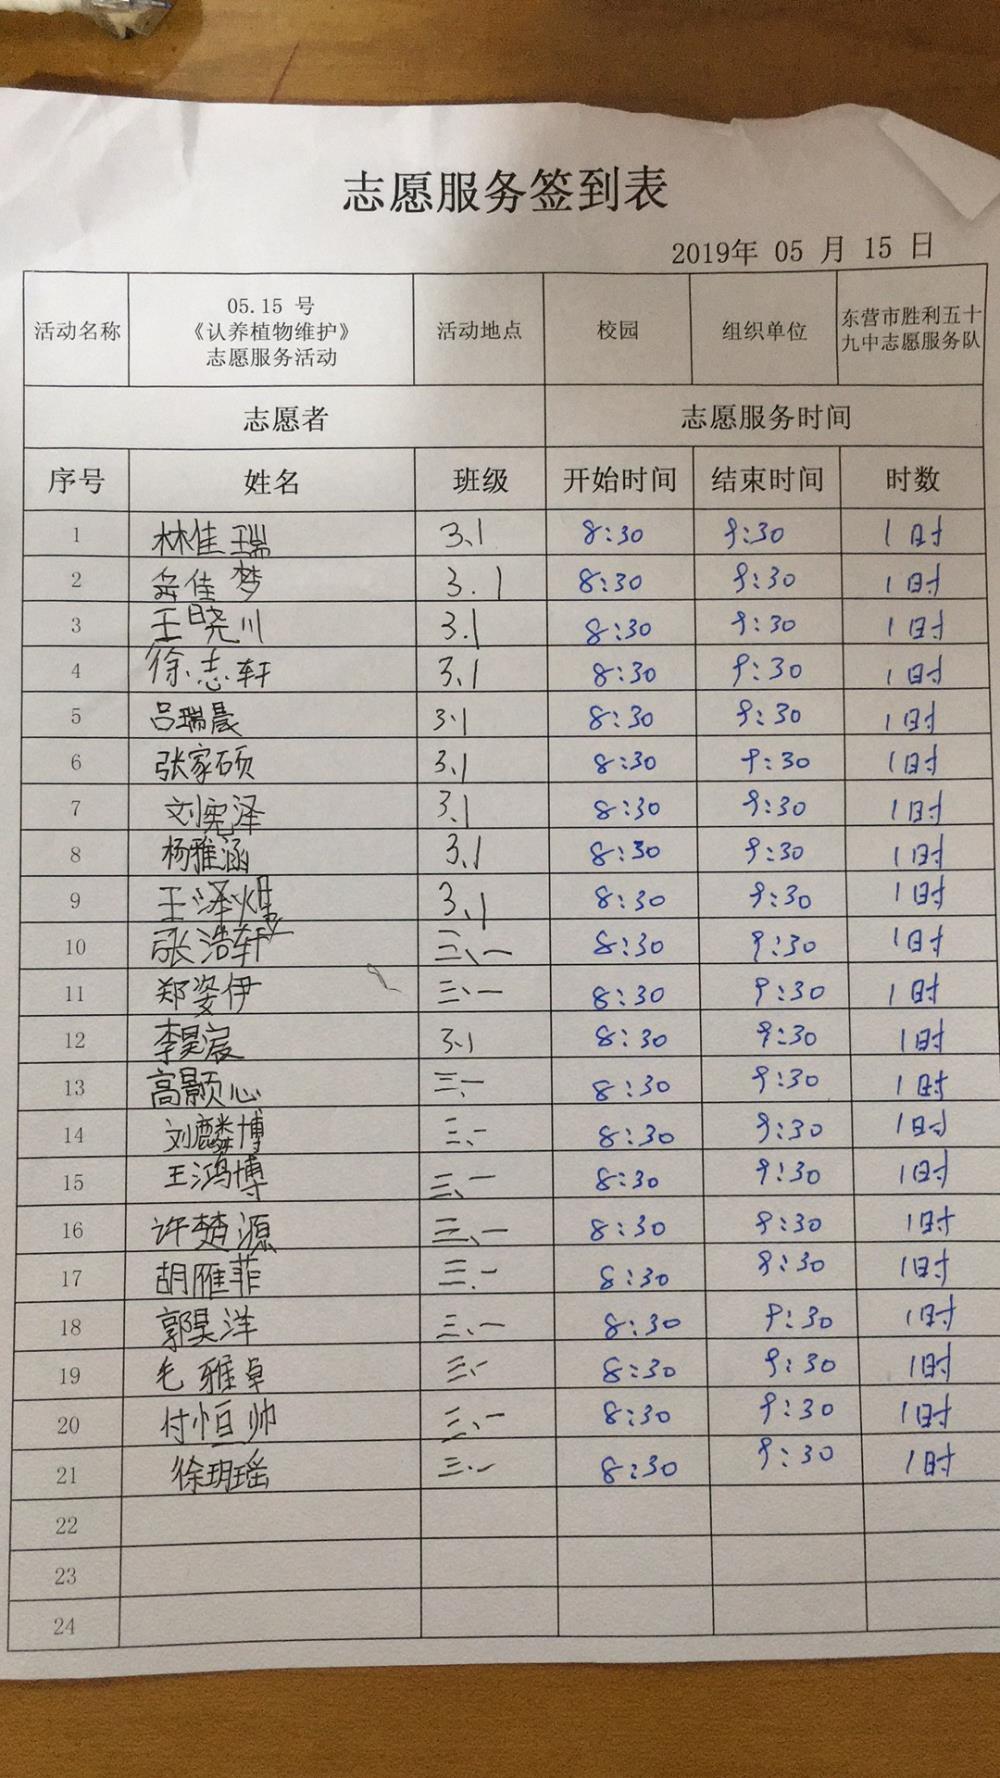 志愿服务签到表
2019年 05 月 15 日
活动名称 05.15 号 《认养植物维护》 志愿服务活动 活动地点 校园 组织单位 东营市胜利五十九中志愿服务队
志愿者 志愿服务时间
序号 姓名 班级 开始时间 结束时间 时数
1 林佳瑞 3、1 8:30 9:30 1时
2 岳佳梦 3.1 8:30 9:30 1时
3 王晓川 3.1 8:30 9:30 1时
4 徐志轩 3、1 8:30 9:30 1时
5 吕瑞晨 3.1 8:30 9:30 1时
6 张家硕 3、1 8:30 9:30 1时
7 刘宪泽 3、1 8:30 9:30 1时
8 杨雅涵 3、1 8:30 9:30 1时
9 王泽煜 3、1 8:30 9:30 1时
10 张浩轩 三、一 8:30 9:30 1时
11 郑姿伊 三、一 8:30 9:30 1时
12 李昊宸 3.1 8:30 9:30 1时
13 高颢心 三、一 8:30 9:30 1时
14 刘麟博 三、一 8:30 9:30 1时
15 王鸿博 三、一 8:30 9:30 1时
16 许楚源 三、一 8:30 9:30 1时
17 胡雁菲 三.一 8:30 9:30 1时
18 郭昊洋 三、一 8:30 9:30 1时
19 毛雅卓 三、一 8:30 9:30 1时
20 付恒帅 三、一 8:30 9:30 1时
21 徐玥瑶 三.一 8:30 9:30 1时
22
23
24